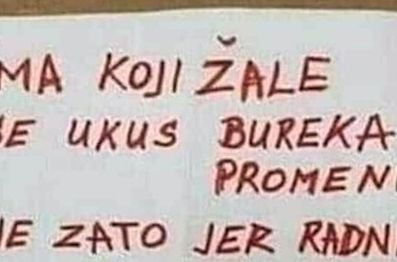 MA KOJI ŽALE
SE UKUS BUREKA
PROMENI
JE ZATO JER RADNI